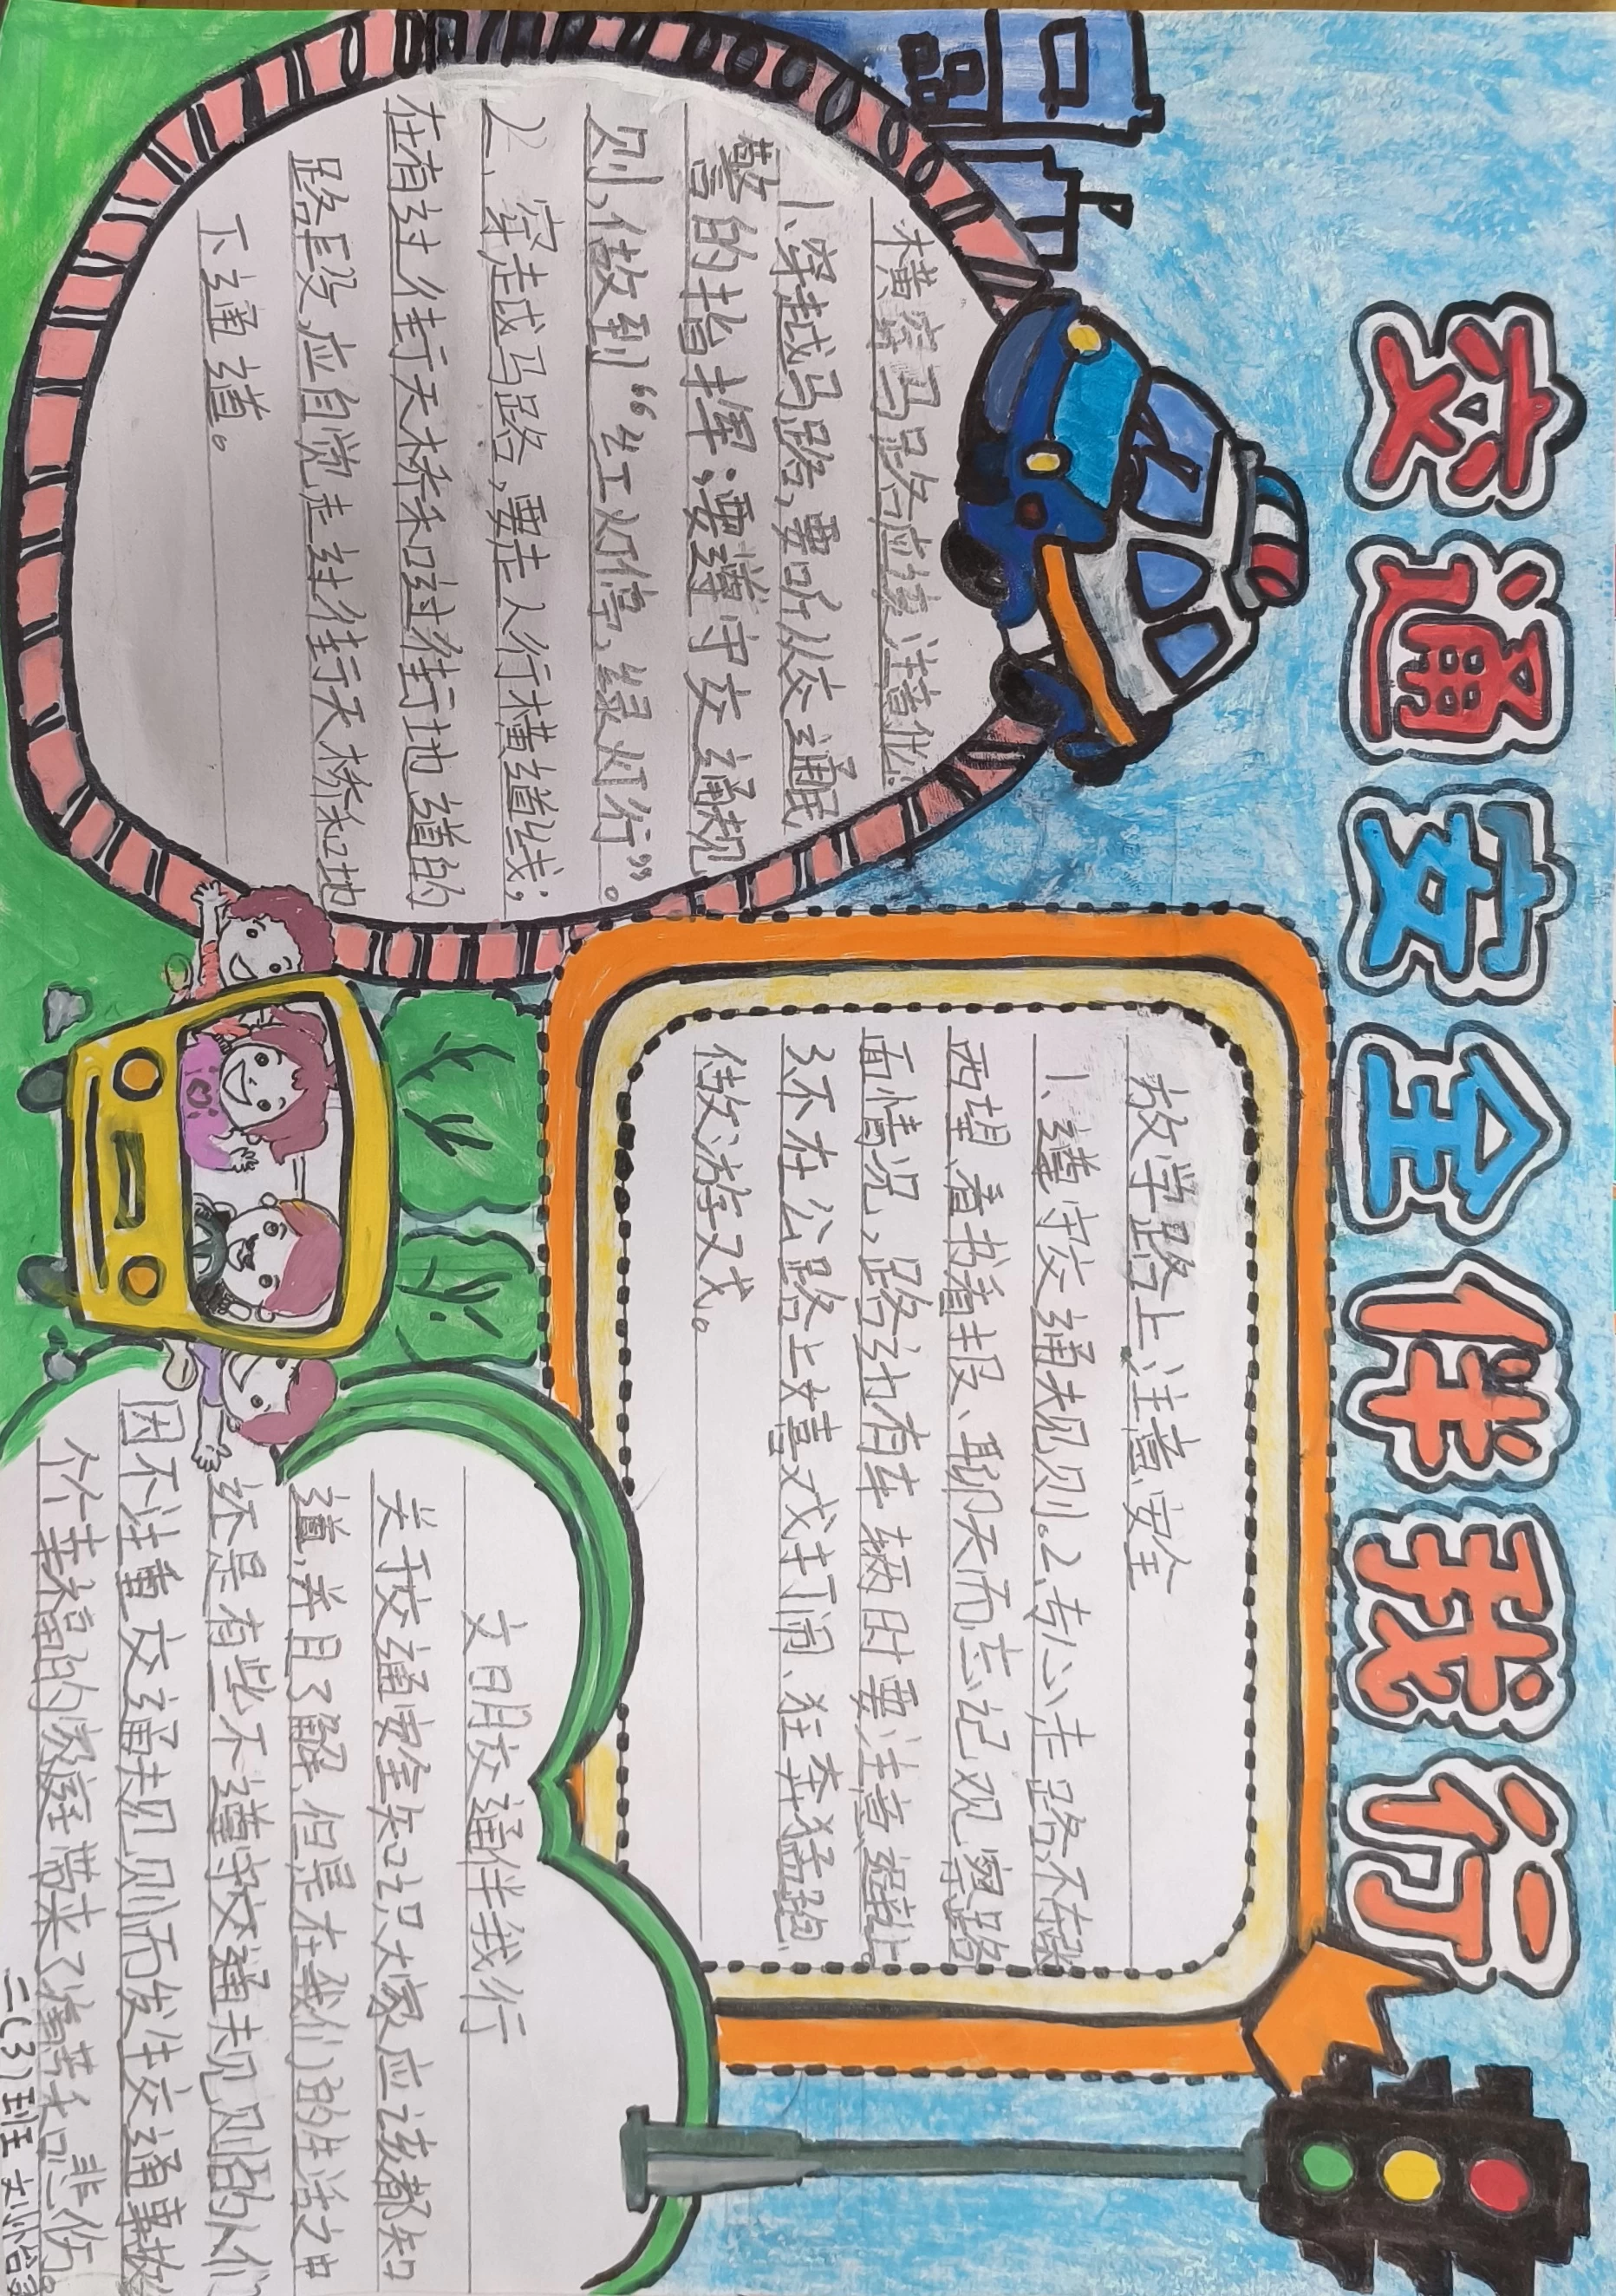 交通安全伴我行
横穿马路应该注意什么
1、穿越马路,要听从交通民
警的指挥;要遵守交通规
则,做到“红灯停,绿灯行”。
2、穿越马路,要走人行横道线;
在有过街天桥和过街地道的
路段,应自觉走过街天桥和地
下通道。
放学路上注意安全
1、遵守交通规则。2、专心走路不东张
西望、看书看报、聊天而忘记观察路
面情况,路边有车辆时要注意避让。
3、不在公路上嬉戏打闹、狂奔猛跑、
做游戏。
文明交通伴我行
关于交通安全知识大家应该都知
道,并且了解,但是在我们的生活之中
还是有些不遵守交通规则的人们
因不注重交通规则而发生交通事故
个个幸福的家庭带来了痛苦和悲伤。
三(3)班